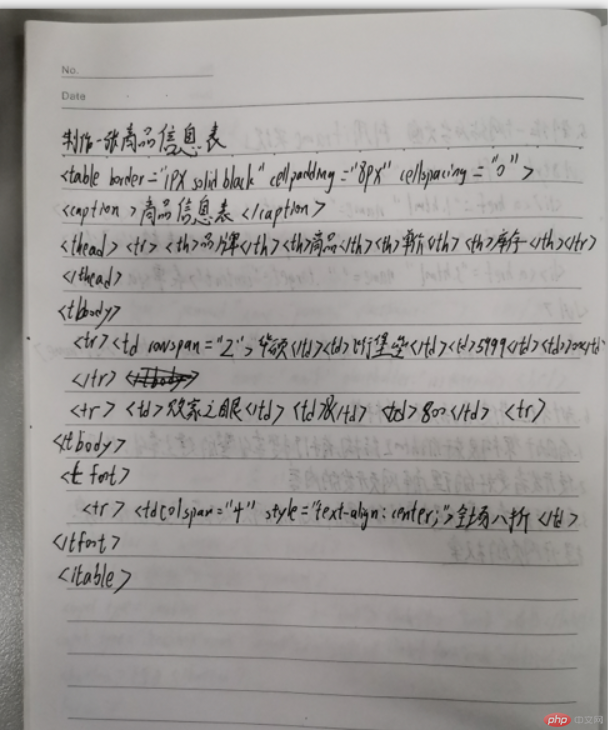 No.
Date
制作一张商品信息表
<table border="1PX solid black" cellpadding="8PX" cellspacing="0">
<caption>商品信息表</caption>
<thead><tr><th>品牌</th><th>商品</th><th>单价</th><th>库存</th></tr>
</thead>
<tbody>
<tr><td rowspan="2">华硕</td><td>飞行堡垒</td><td>5999</td><td></td>
</tr>
<tr><td>败家之眼</td><td></td><td>800</td><tr>
<tbody>
<tfoot>
<tr><tdcolspan="4" style="text-align:center;">全场八折</td>
</tfoot>
<table>
php 中文网